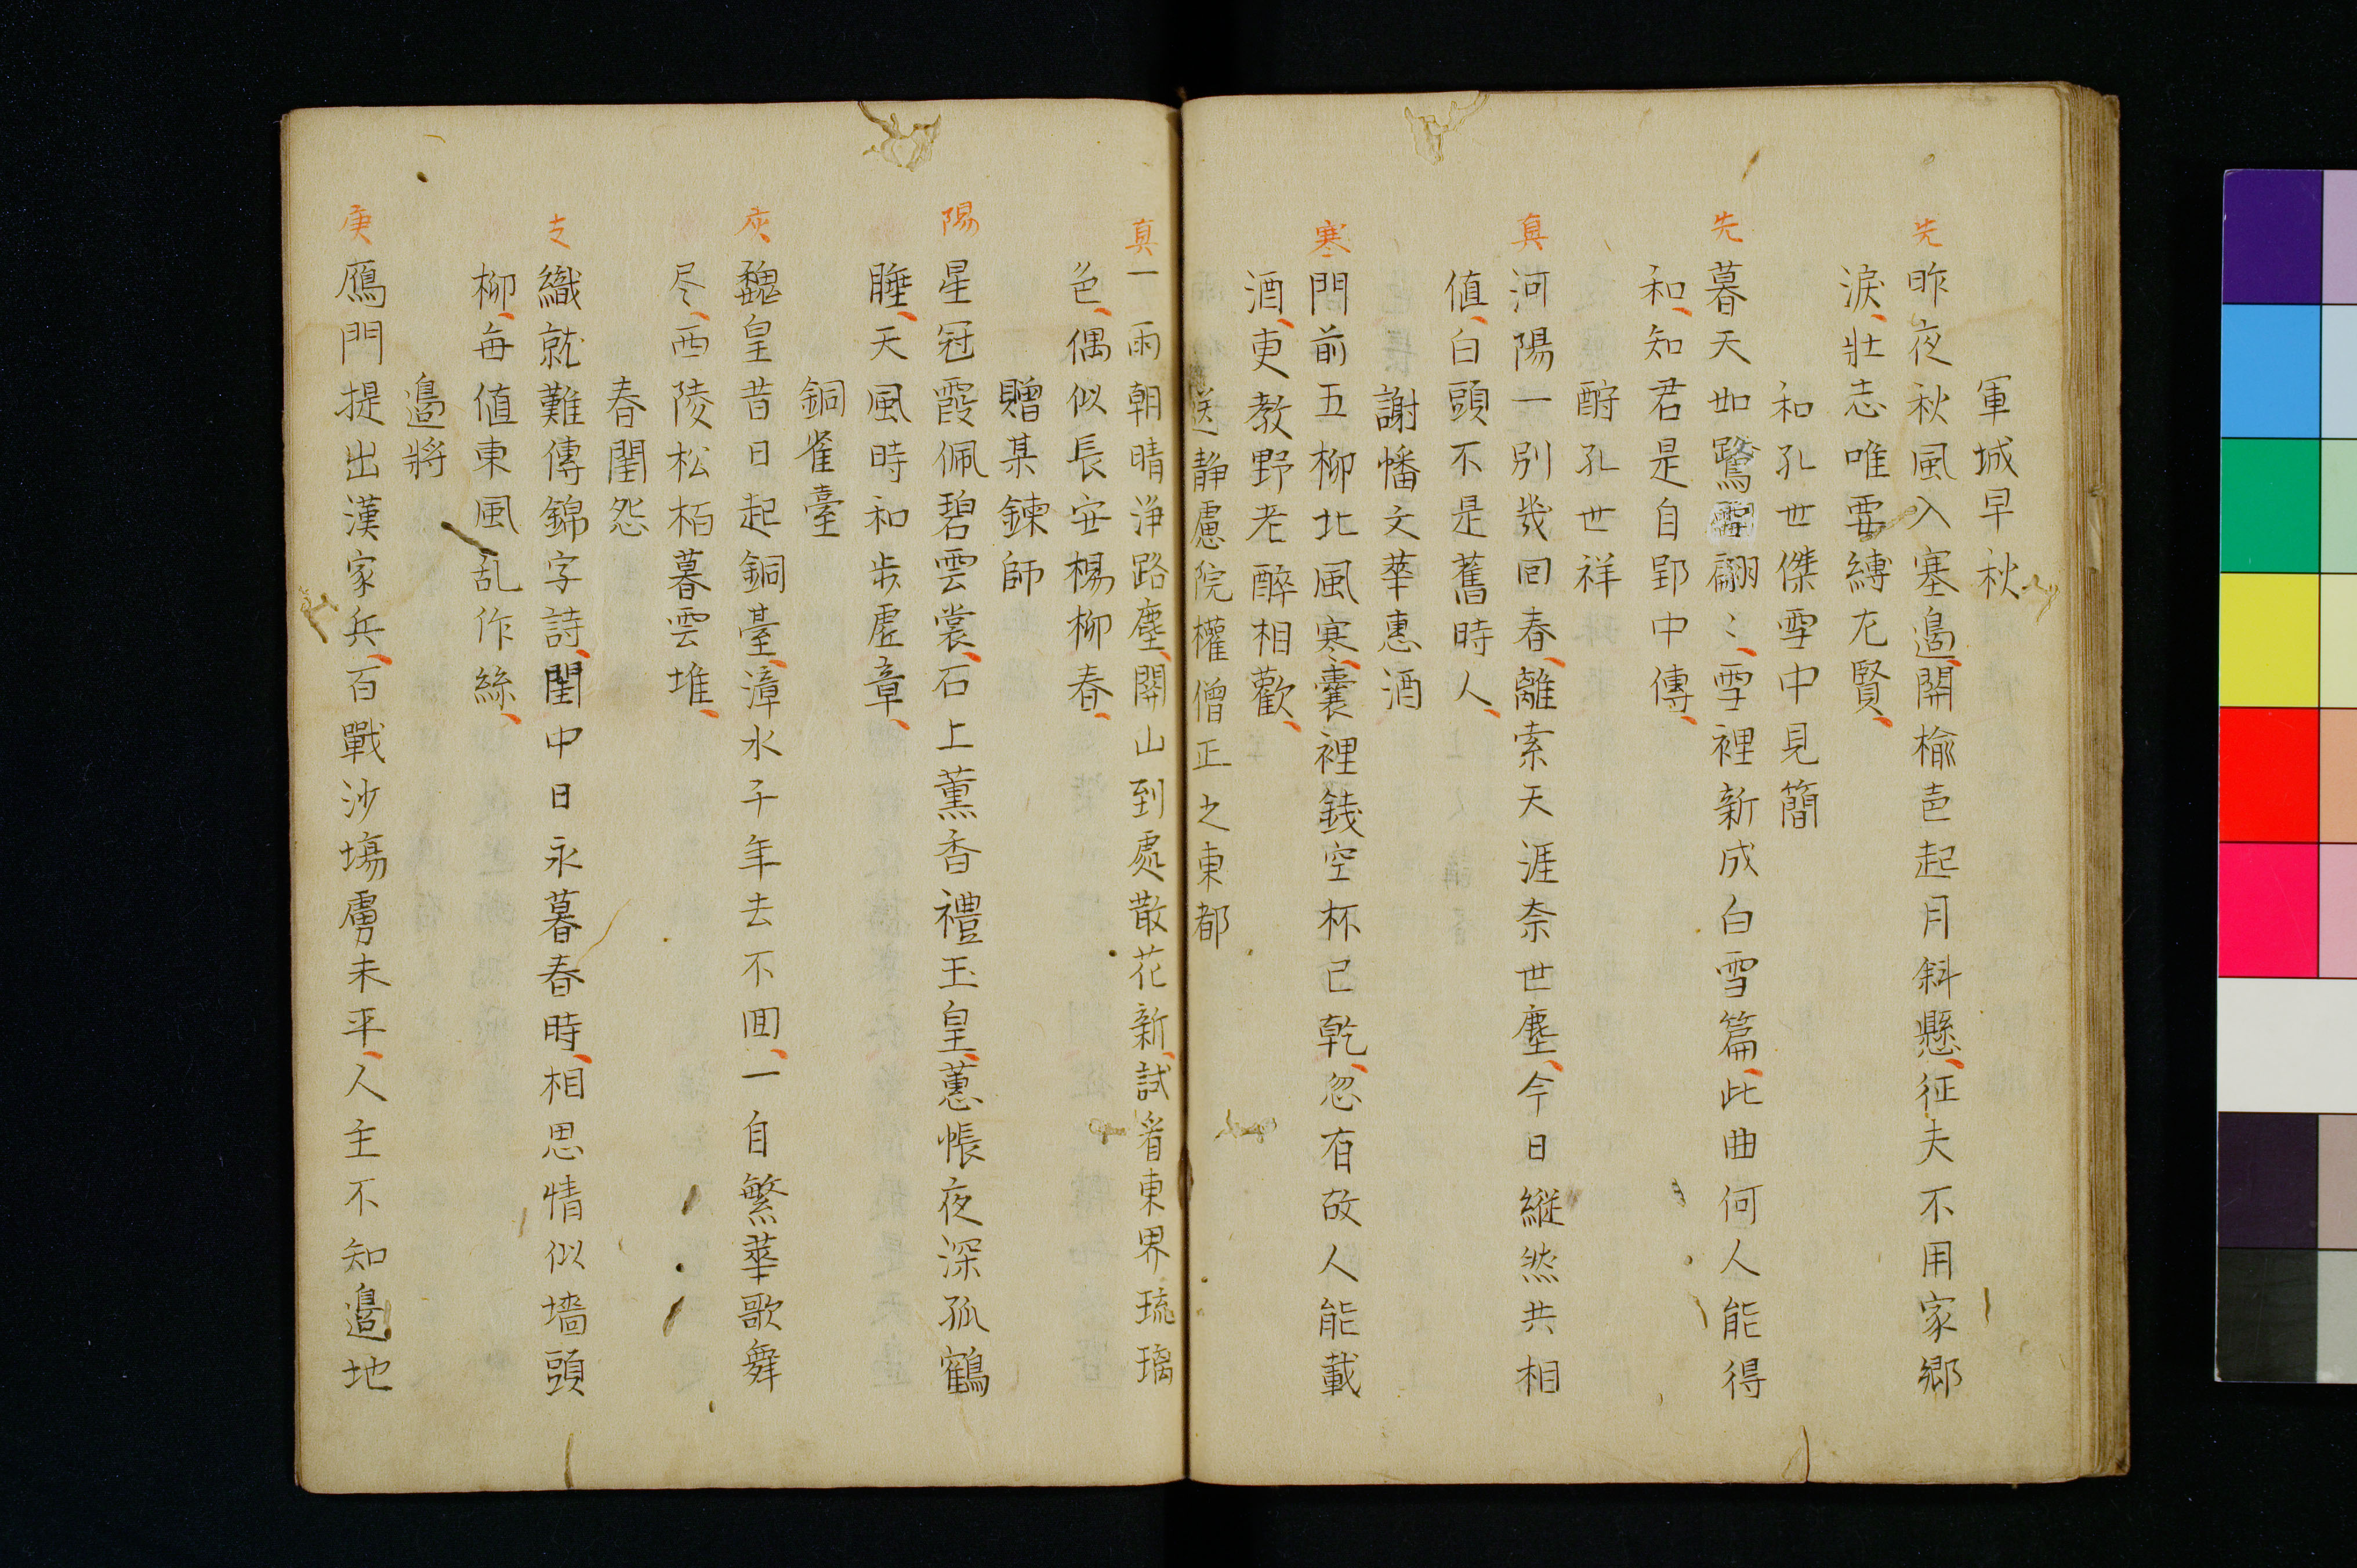 軍城早秋
先 昨夜秋風入塞邉、開楡色起月斜懸、征夫不用家郷
涙、壮志唯要縛左賢、
和孔世傑雪中見簡
先 暮天如鷺雪翩〻、雪裡新成白雪篇、此曲何人能得
和、知君是自郢中傳、
酹孔世祥
真 河陽一別幾回春、離索天涯奈世塵、今日縦然共相
値、白頭不是舊時人、
謝幡文華惠酒
寒 門前五柳北風寒、囊裡錢空杯已乾、忽有故人能載
酒、更教野老醉相歡、
送静慮院權僧正之東都
真 一雨朝晴浄路塵、關山到處散花新、試看東界琉璃
色、偶似長安楊柳春、
贈某錬師
陽 星冠霞佩碧雲裳、石上薫香禮玉皇、蕙帳夜深孤鶴
睡、天風時和步虚章、
銅雀臺
灰 魏皇昔日起銅臺、漳水千年去不囬、一自繁華歌舞
尽、西陵松栢暮雲堆、
春閨怨
支 織就難傳錦字詩、閨中日永暮春時、相思情似墻頭
柳、毎値東風乱作絲、
邉將
庚 鴈門提出漢家兵、百戰沙塲虜未平、人主不知邉地